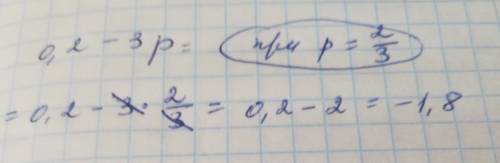 0,2 - 3p = при p = 2/3
= 0,2 - 3 · 2/3 = 0,2 - 2 = -1,8